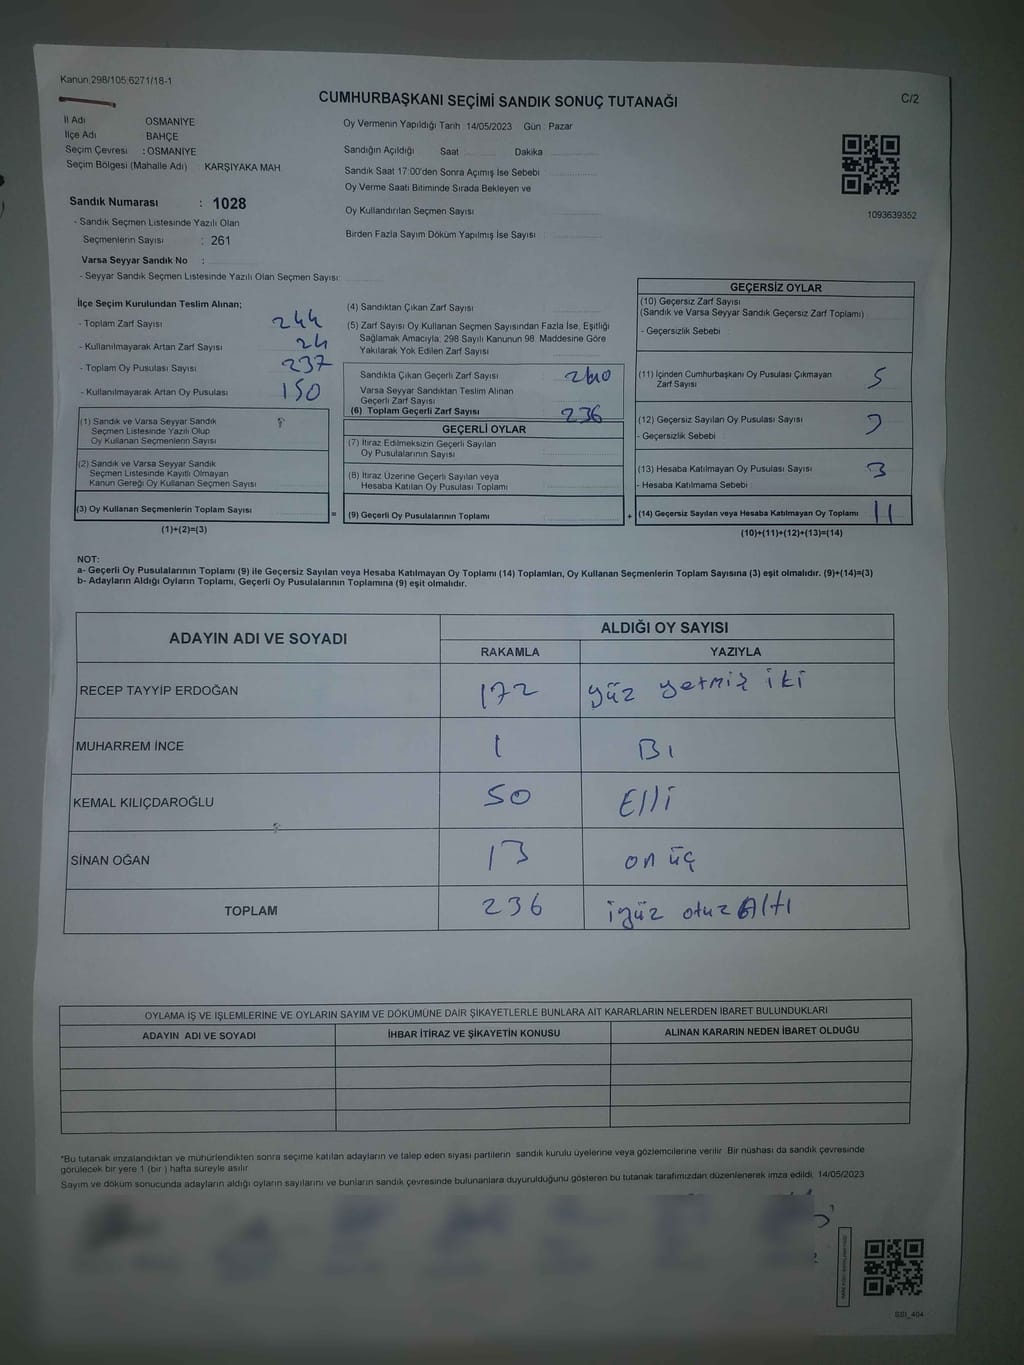 Kanun,298/105,6271/18-1
CUMHURBAŞKANI SEÇİMİ SANDIK SONUÇ TUTANAĞI
C/2
İl Adı OSMANİYE
İlçe Adı BAHÇE
Seçim Çevresi : OSMANİYE
Seçim Bölgesi (Mahalle Adı) : KARŞIYAKA MAH
Oy Vermenin Yapıldığı Tarih :14/05/2023 Gün : Pazar
Sandığın Açıldığı Saat Dakika
Sandık Saat 17:00'den Sonra Açımış İse Sebebi
Oy Verme Saati Bitiminde Sırada Bekleyen ve
Oy Kullandırılan Seçmen Sayısı
Birden Fazla Sayım Döküm Yapılmış İse Sayısı
1093639352
Sandık Numarası : 1028
- Sandık Seçmen Listesinde Yazılı Olan
Seçmenlerin Sayısı : 261
Varsa Seyyar Sandık No :
- Seyyar Sandık Seçmen Listesinde Yazılı Olan Seçmen Sayısı:
İlçe Seçim Kurulundan Teslim Alınan;
- Toplam Zarf Sayısı 244
- Kullanılmayarak Artan Zarf Sayısı 24
- Toplam Oy Pusulası Sayısı 237
- Kullanılmayarak Artan Oy Pusulası 150
(1) Sandık ve Varsa Seyyar Sandık
Seçmen Listesinde Yazılı Olup
Oy Kullanan Seçmenlerin Sayısı
(2) Sandık ve Varsa Seyyar Sandık
Seçmen Listesinde Kayıtlı Olmayan
Kanun Gereği Oy Kullanan Seçmen Sayısı
(3) Oy Kullanan Seçmenlerin Toplam Sayısı
(1)+(2)=(3)
=
(4) Sandıktan Çıkan Zarf Sayısı
(5) Zarf Sayısı Oy Kullanan Seçmen Sayısından Fazla İse, Eşitliği
Sağlamak Amacıyla, 298 Sayılı Kanunun 98. Maddesine Göre
Yakılarak Yok Edilen Zarf Sayısı
Sandıkta Çıkan Geçerli Zarf Sayısı 240
Varsa Seyyar Sandıktan Teslim Alınan
Geçerli Zarf Sayısı
(6) Toplam Geçerli Zarf Sayısı 236
GEÇERLİ OYLAR
(7) İtiraz Edilmeksizin Geçerli Sayılan
Oy Pusulalarının Sayısı
(8) İtiraz Üzerine Geçerli Sayılan veya
Hesaba Katılan Oy Pusulası Toplamı
(9) Geçerli Oy Pusulalarının Toplamı
+
GEÇERSİZ OYLAR
(10) Geçersiz Zarf Sayısı
(Sandık ve Varsa Seyyar Sandık Geçersiz Zarf Toplamı)
- Geçersizlik Sebebi
(11) İçinden Cumhurbaşkanı Oy Pusulası Çıkmayan
Zarf Sayısı 5
(12) Geçersiz Sayılan Oy Pusulası Sayısı
- Geçersizlik Sebebi
(13) Hesaba Katılmayan Oy Pusulası Sayısı 3
- Hesaba Katılmama Sebebi
(14) Geçersiz Sayılan veya Hesaba Katılmayan Oy Toplamı 11
(10)+(11)+(12)+(13)=(14)
NOT:
a- Geçerli Oy Pusulalarının Toplamı (9) ile Geçersiz Sayılan veya Hesaba Katılmayan Oy Toplamı (14) Toplamları, Oy Kullanan Seçmenlerin Toplam Sayısına (3) eşit olmalıdır. (9)+(14)=(3)
b- Adayların Aldığı Oyların Toplamı, Geçerli Oy Pusulalarının Toplamına (9) eşit olmalıdır.
ADAYIN ADI VE SOYADI
ALDIĞI OY SAYISI
RAKAMLA YAZIYLA
RECEP TAYYİP ERDOĞAN 172 yüz yetmiş iki
MUHARREM İNCE 1 Bı
KEMAL KILIÇDAROĞLU 50 Elli
SİNAN OĞAN 13 on üç
TOPLAM 236 iyüz otuz Altı
OYLAMA İŞ VE İŞLEMLERİNE VE OYLARIN SAYIM VE DÖKÜMÜNE DAİR ŞİKAYETLERLE BUNLARA AİT KARARLARIN NELERDEN İBARET BULUNDUKLARI
ADAYIN ADI VE SOYADI İHBAR İTİRAZ VE ŞİKAYETİN KONUSU ALINAN KARARIN NEDEN İBARET OLDUĞU
*Bu tutanak imzalandıktan ve mühürlendikten sonra seçime katılan adayların ve talep eden siyasi partilerin sandık kurulu üyelerine veya gözlemcilerine verilir. Bir nüshası da sandık çevresinde
görülecek bir yere 1 (bir ) hafta süreyle asılır.
Sayım ve döküm sonucunda adayların aldığı oyların sayılarını ve bunların sandık çevresinde bulunanlara duyurulduğunu gösteren bu tutanak tarafımızdan düzenlenerek imza edildi. 14/05/2023
SSI_404